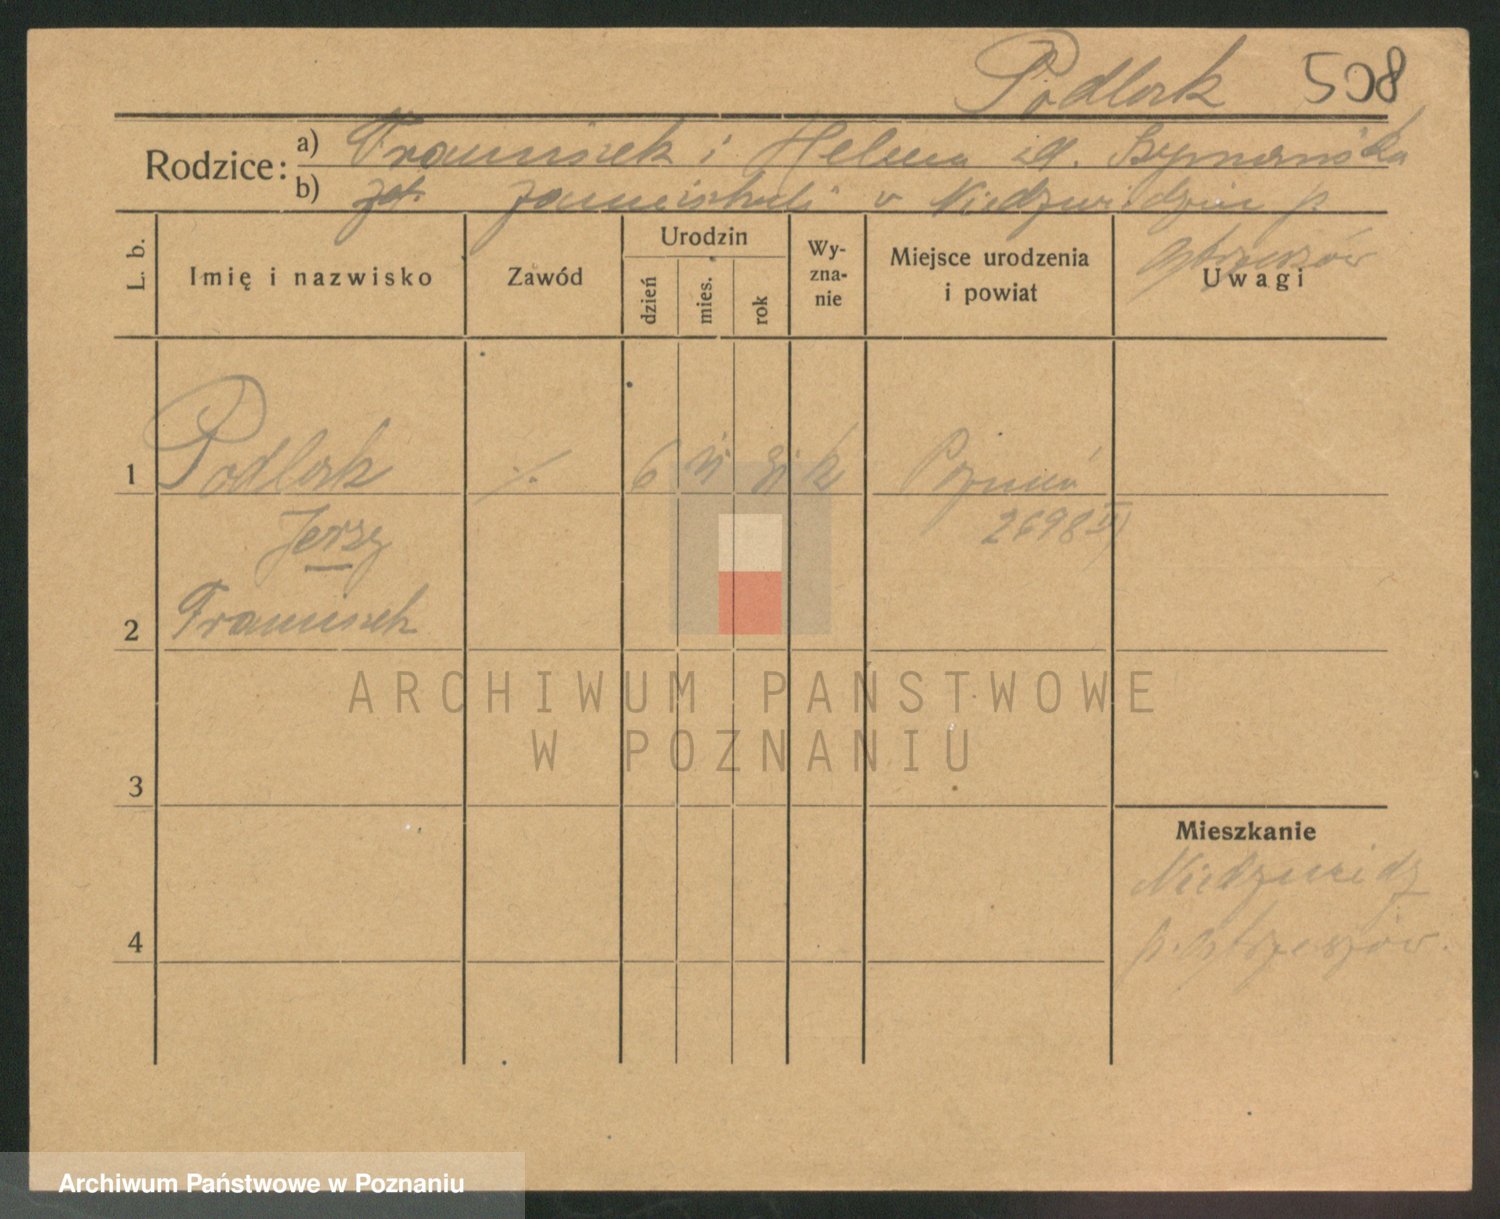 Podlak 508
Rodzice: a) Franciszek i Helena Szymańska
b) zamieszkali w Niedźwiedziu p.
Ostrzeszów
L. b. Imię i nazwisko Zawód Urodzin dzień mies. rok Wy-zna-nie Miejsce urodzenia i powiat Uwagi
1 Podlak ./. 6 31 k Poznań
Jerzy 2698
2 Franciszek
3
Mieszkanie
Niedźwiedź
4 p. Ostrzeszów.
ARCHIWUM PAŃSTWOWE
W POZNANIU
Archiwum Państwowe w Poznaniu